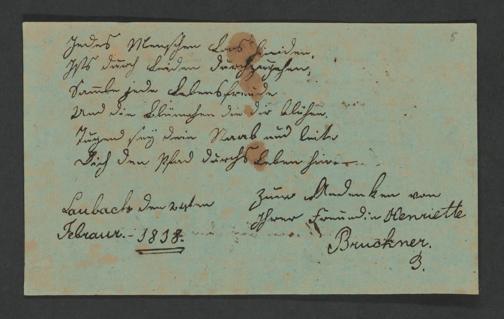 Jedes Menschen Loos
Ists durch Leiden durchzugehen,
Samle jede Lebensfreude
Und die Blümchen die dir blühen.
Tugend sey dein Staab und leite
Dich den Pfad durchs Leben hin
Laubach den 24ten
Februar. 1838.
Zum Andenken von
Ihrer Freundin Henriette
Bruckner.
5